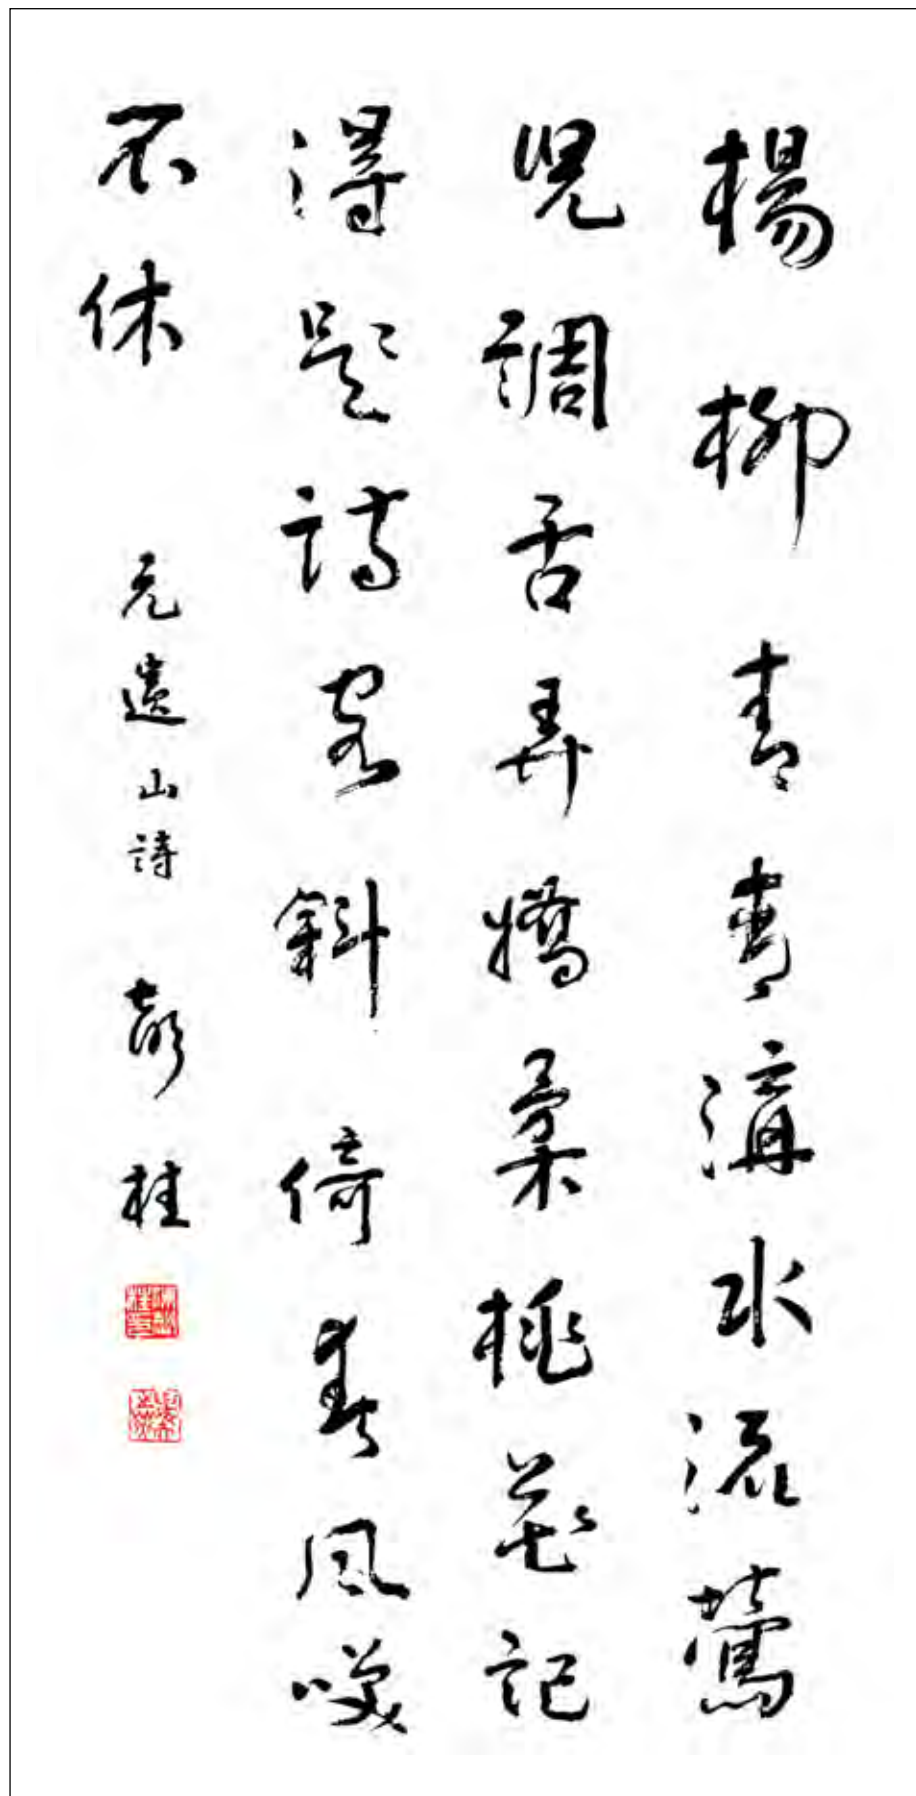 楊柳青青溝水流鶯
児調舌弄嬌柔桃花記
得題詩客斜倚春風咲
不休 元遺山詩 桂